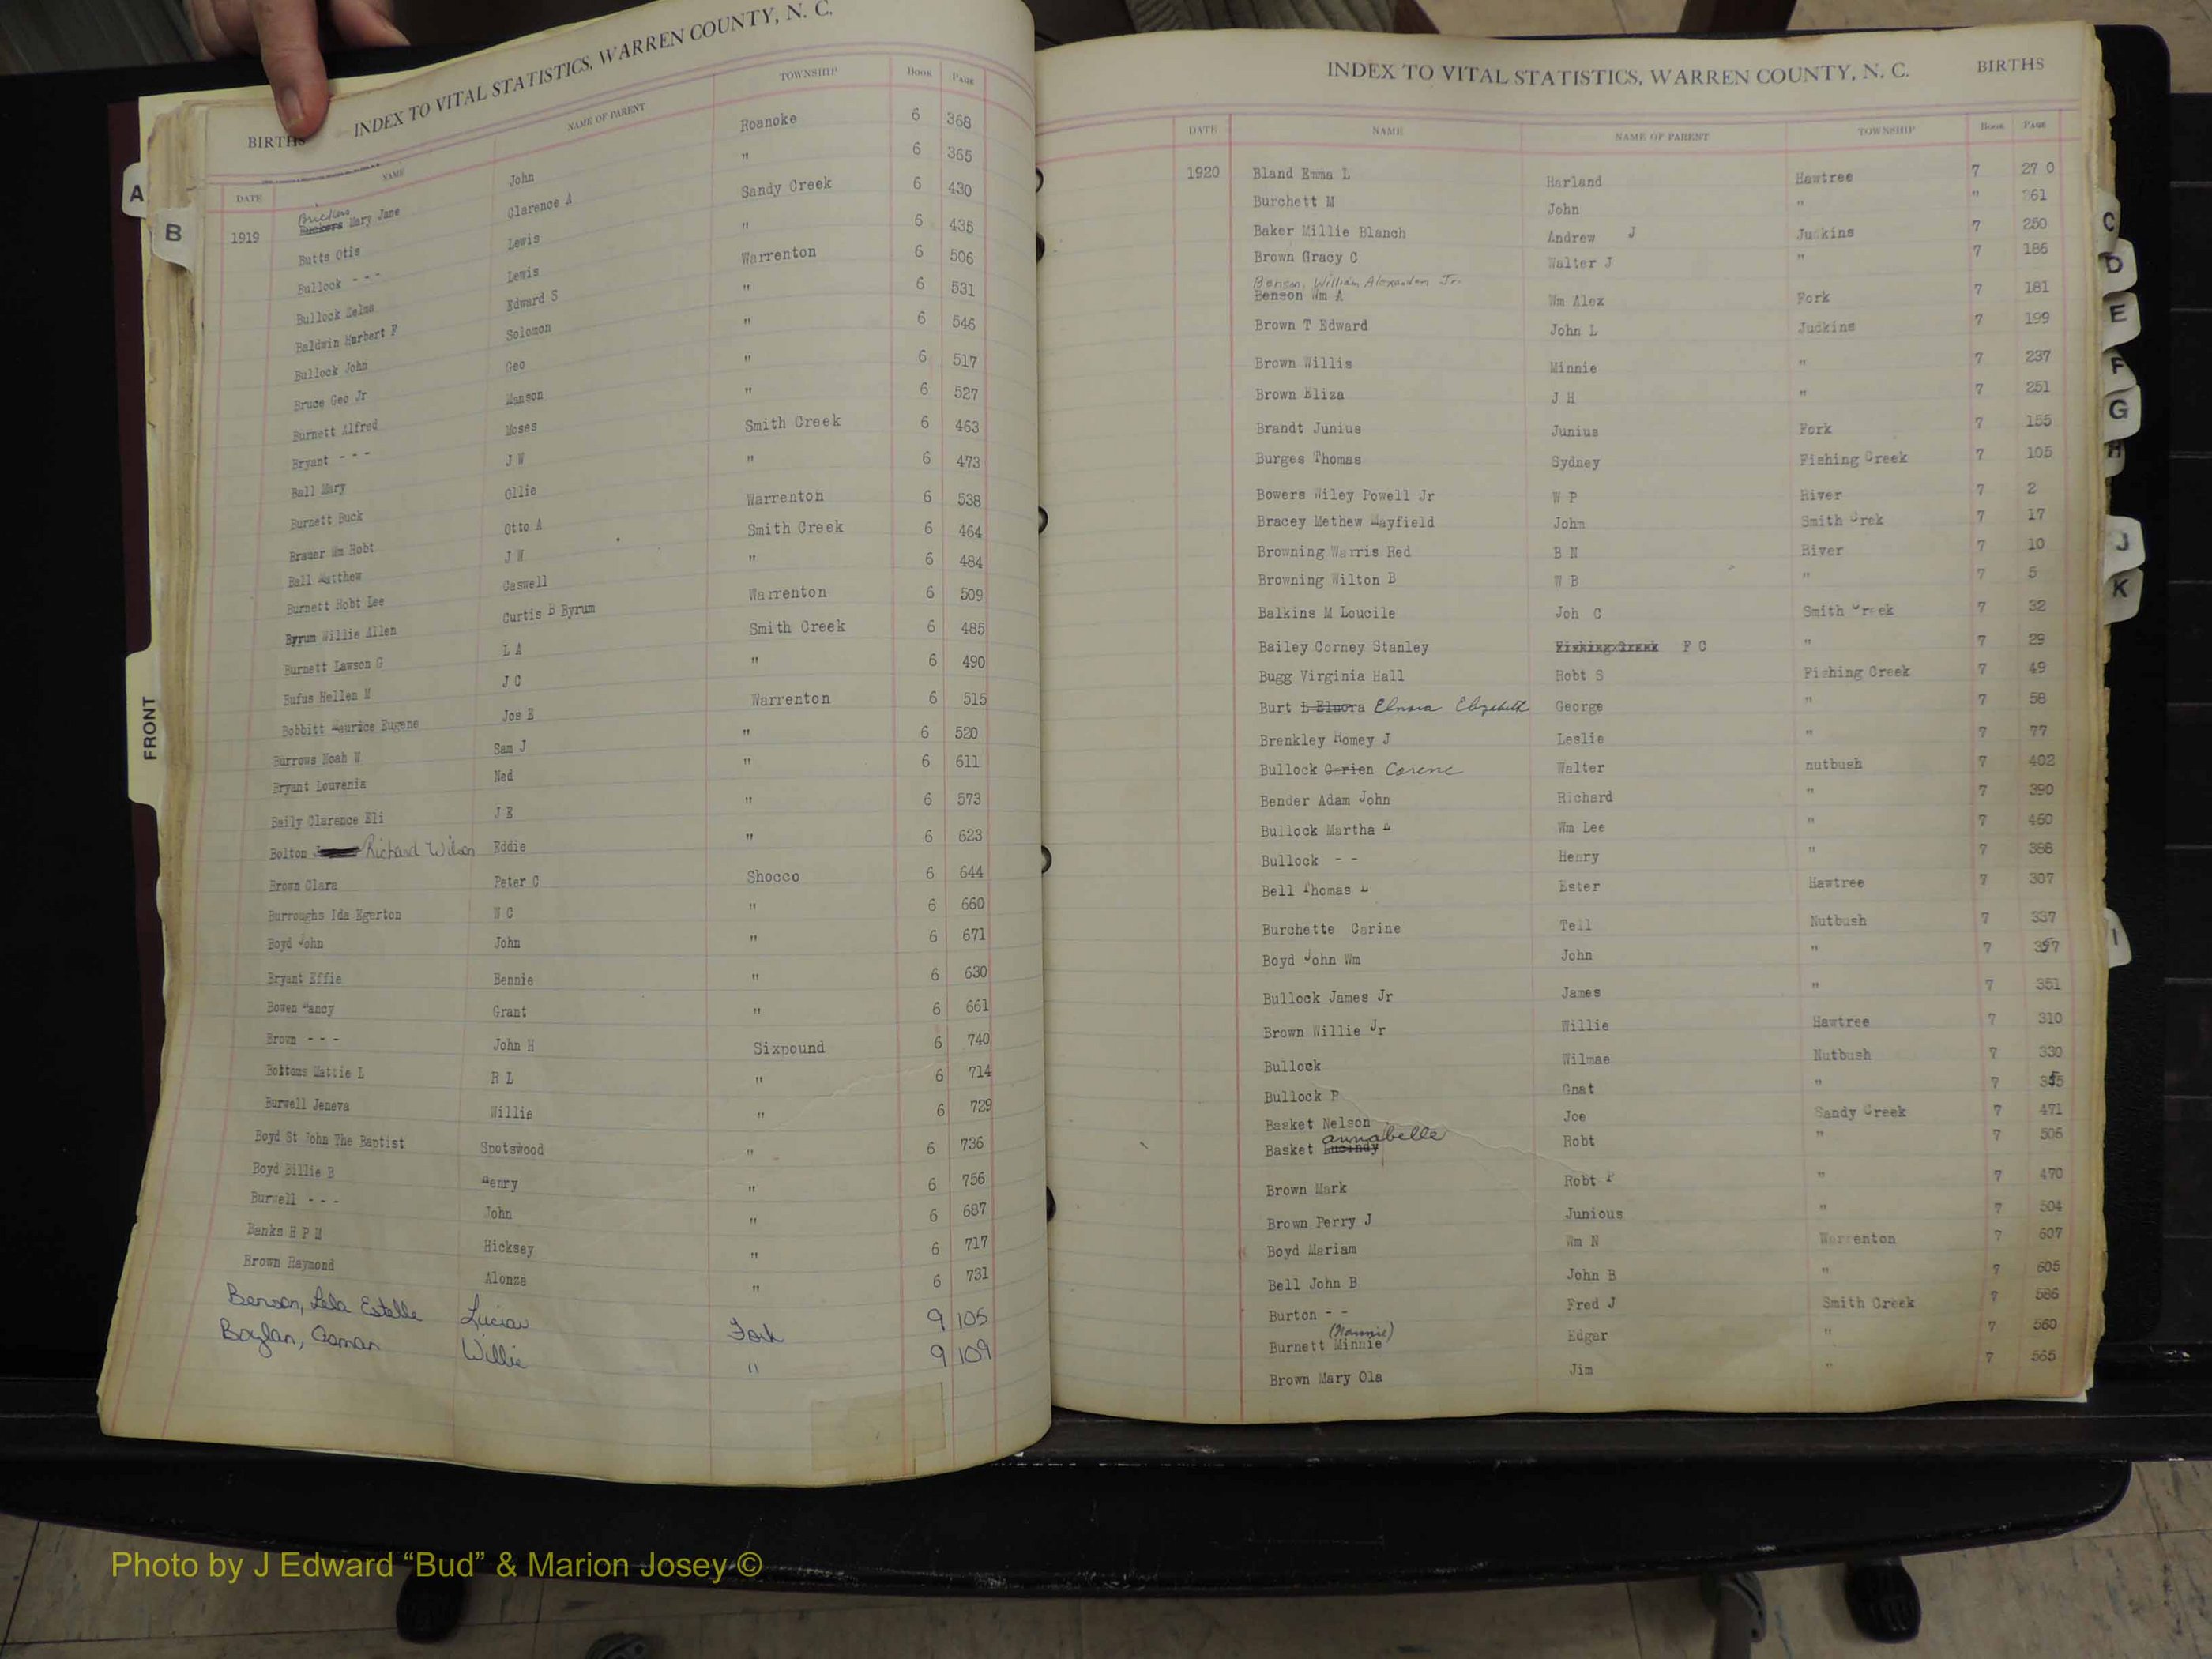 INDEX TO VITAL STATISTICS, WARREN COUNTY, N. C.
BIRTHS
DATE NAME NAME OF PARENT TOWNSHIP Book Page
1919 Mary Jane John Roanoke 6 368
Butts Otis Clarence A " 6 365
Bullock - - - Lewis Sandy Creek 6 430
Bullock Zelma Lewis " 6 435
Baldwin Herbert F Edward S Warrenton 6 506
Bullock John Solomon " 6 531
Bruce Geo Jr Geo " 6 546
Burnett Alfred Manson " 6 517
Bryant - - - Moses " 6 527
Ball Mary J W Smith Creek 6 463
Burnett Buck Ollie " 6 473
Brauer Wm Robt Otto A Warrenton 6 538
Ball Matthew J W Smith Creek 6 464
Burnett Robt Lee Caswell " 6 484
Byrum Willie Allen Curtis B Byrum Warrenton 6 509
Burnett Lawson G L A Smith Creek 6 485
Bufus Hellen M J C " 6 490
Bobbitt Maurice Eugene Jos E Warrenton 6 515
Burrows Noah W Sam J " 6 520
Bryant Louvenia Ned " 6 611
Baily Clarence Eli J E " 6 573
Bolton Richard Wilson Eddie " 6 623
Brown Clara Peter C Shocco 6 644
Burroughs Ida Egerton W C " 6 660
Boyd John John " 6 671
Bryant Effie Bennie " 6 630
Bowen Nancy Grant " 6 661
Brown - - - John H Sixpound 6 740
Bottoms Mattie L R L " 6 714
Burwell Jeneva Willie " 6 729
Boyd St John The Baptist Spotswood " 6 736
Boyd Billie B Henry " 6 756
Burwell - - - John " 6 687
Banks H P M Hicksey " 6 717
Brown Raymond Alonza " 6 731
Benson, Lela Estelle Lucian Fork 9 105
Boylan, Osman Willie " 9 109
A
B
FRONT
INDEX TO VITAL STATISTICS, WARREN COUNTY, N. C. BIRTHS
DATE NAME NAME OF PARENT TOWNSHIP Book Page
1920 Bland Emma L Harland Hawtree 7 27 0
Burchett M John " " 261
Baker Millie Blanch Andrew J Judkins 7 250
Brown Gracy C Walter J " 7 186
Benson, William Alexander Jr.
Benson Wm A Wm Alex Fork 7 181
Brown T Edward John L Judkins 7 199
Brown Willis Minnie " 7 237
Brown Eliza J H " 7 251
Brandt Junius Junius Fork 7 155
Burges Thomas Sydney Fishing Creek 7 105
Bowers Wiley Powell Jr W P River 7 2
Bracey Methew Mayfield John Smith Crek 7 17
Browning Warris Red B N River 7 10
Browning Wilton B W B " 7 5
Balkins M Loucile Joh C Smith Creek 7 32
Bailey Corney Stanley F C " 7 29
Bugg Virginia Hall Robt S Fishing Creek 7 49
Burt L Elnora Elnora Elizabeth George " 7 58
Brenkley Romey J Leslie " 7 77
Bullock Corien Corene Walter nutbush 7 402
Bender Adam John Richard " 7 390
Bullock Martha Wm Lee " 7 460
Bullock - - Henry " 7 388
Bell Thomas Ester Hawtree 7 307
Burchette Carine Tell Nutbush 7 337
Boyd John Wm John " 7 357
Bullock James Jr James " 7 351
Brown Willie Jr Willie Hawtree 7 310
Bullock Wilmae Nutbush 7 330
Bullock P Gnat " 7
Basket Nelson Joe Sandy Creek 7 471
Basket Lucindy annabelle Robt " 7 506
Brown Mark Robt P " 7 470
Brown Perry J Junious " 7 504
Boyd Mariam Wm N Warrenton 7 607
Bell John B John B " 7 605
Burton - - Fred J Smith Creek 7 586
Burnett Minnie (Nannie) Edgar " 7 560
Brown Mary Ola Jim " 7 565
C
D
E
F
G
H
J
K
I
Photo by J Edward “Bud” & Marion Josey ©